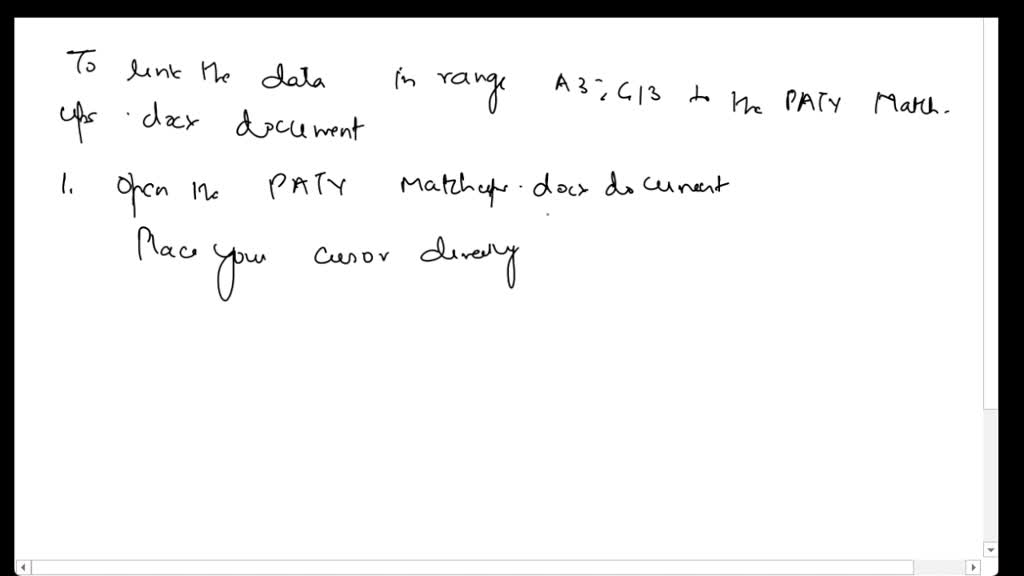 To link the data in range A3:G13 to the PATY Match-
ups.docx document
1. Open the PATY Matchups.docx document
Place your cursor directly